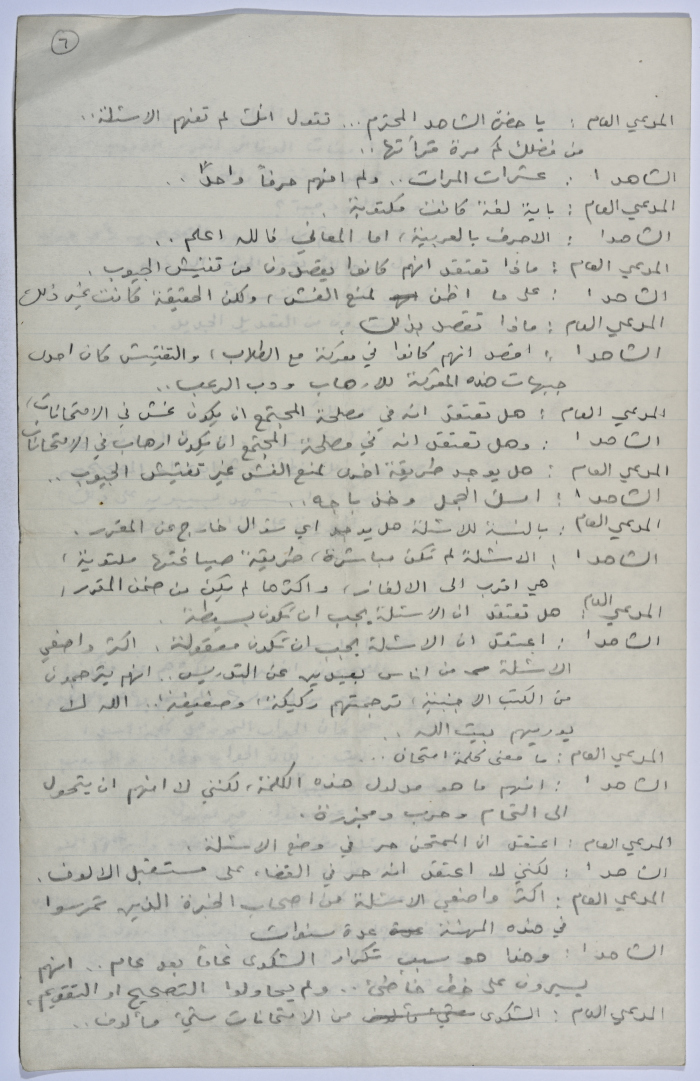 ٦
المدعي العام : يا حضرة الشاهد المحترم... تقول انك لم تفهم الاسئلة..
من فضلك كم مرة قرأتها..
الشاهد ١ : عشرات المرات.. ولم افهم حرفاً واحداً..
المدعي العام : باية لغة كانت مكتوبة.
الشاهد ١ : الاحرف بالعربية، اما المعاني فالله اعلم..
المدعي العام : ماذا تعتقد انهم كانوا يقصدون من تفتيش الجيوب.
الشاهد ١ : على ما اظن لمنع الغش، ولكن الحقيقة كانت غير ذلك
المدعي العام : ماذا تقصد بذلك.
الشاهد ١ : اقصد انهم كانوا في معركة مع الطلاب، والتفتيش كان احدى
جبهات هذه المعركة للارهاب ودب الرعب..
المدعي العام : هل تعتقد انه في مصلحة المجتمع ان يكون غش في الامتحانات،
الشاهد ١ : وهل تعتقد انه في مصلحة المجتمع ان يكون ارهاب في الامتحانات
المدعي العام : هل يوجد طريقة اخرى لمنع الغش غير تفتيش الجيوب..
الشاهد ١ : اسأل الجمل وخذ باجه..
المدعي العام : بالنسبة للاسئلة هل يوجد اي سؤال خارج عن المقرر.
الشاهد ١ : الاسئلة لم تكن مباشرة، طريقة صياغتها ملتوية،
هي اقرب الى الالغاز، واكثرها لم يكن من ضمن المقرر،
المدعي العام : هل تعتقد ان الاسئلة يجب ان تكون بسيطة.
الشاهد ١ : اعتقد ان الاسئلة يجب ان تكون معقولة. اكثر واضعي
الاسئلة من اناس بعيدين عن التدريس.. انهم يترجمون
من الكتب الاجنبية، ترجمتهم ركيكة، وضعيفة.. الله لا
يوريهم بيت الله..
المدعي العام : ما معنى كلمة امتحان...
الشاهد ١ : افهم ما هو مدلول هذه الكلمة، لكنني لا افهم ان يتحول
الى التحام وحرب ومجزرة.
المدعي العام : اعتقد ان الممتحن حر في وضع الاسئلة.
الشاهد ١ : لكنني لا اعتقد انه حر في القضاء على مستقبل الالوف.
المدعي العام : اكثر واضعي الاسئلة من اصحاب الخبرة الذين تمرسوا
في هذه المهنة عدة سنوات
الشاهد ١ : وهذا هو سبب تكرار الشكوى عاماً بعد عام.. انهم
يسيرون على خط خاطئ.. ولم يحاولوا التصحيح او التقويم،
المدعي العام : الشكوى من الامتحانات شيء مألوف..